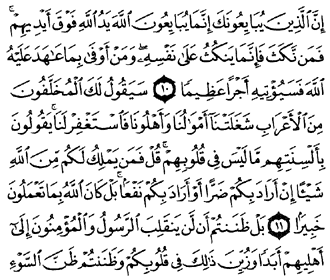 إِنَّ ٱلَّذِينَ يُبَايِعُونَكَ إِنَّمَا يُبَايِعُونَ ٱللَّهَ يَدُ ٱللَّهِ فَوْقَ أَيْدِيهِمْ ۚ
فَمَن نَّكَثَ فَإِنَّمَا يَنكُثُ عَلَىٰ نَفْسِهِۦ ۖ وَمَنْ أَوْفَىٰ بِمَا عَـٰهَدَ عَلَيْهُ
ٱللَّهَ فَسَيُؤْتِيهِ أَجْرًا عَظِيمًا ۝١٠ سَيَقُولُ لَكَ ٱلْمُخَلَّفُونَ
مِنَ ٱلْأَعْرَابِ شَغَلَتْنَآ أَمْوَٰلُنَا وَأَهْلُونَا فَٱسْتَغْفِرْ لَنَا ۚ يَقُولُونَ
بِأَلْسِنَتِهِم مَّا لَيْسَ فِى قُلُوبِهِمْ ۚ قُلْ فَمَن يَمْلِكُ لَكُم مِّنَ ٱللَّهِ
شَيْـًٔا إِنْ أَرَادَ بِكُمْ ضَرًّا أَوْ أَرَادَ بِكُمْ نَفْعًۢا ۚ بَلْ كَانَ ٱللَّهُ بِمَا تَعْمَلُونَ
خَبِيرًۢا ۝١١ بَلْ ظَنَنتُمْ أَن لَّن يَنقَلِبَ ٱلرَّسُولُ وَٱلْمُؤْمِنُونَ إِلَىٰٓ
أَهْلِيهِمْ أَبَدًا وَزُيِّنَ ذَٰلِكَ فِى قُلُوبِكُمْ وَظَنَنتُمْ ظَنَّ ٱلسَّوْءِ